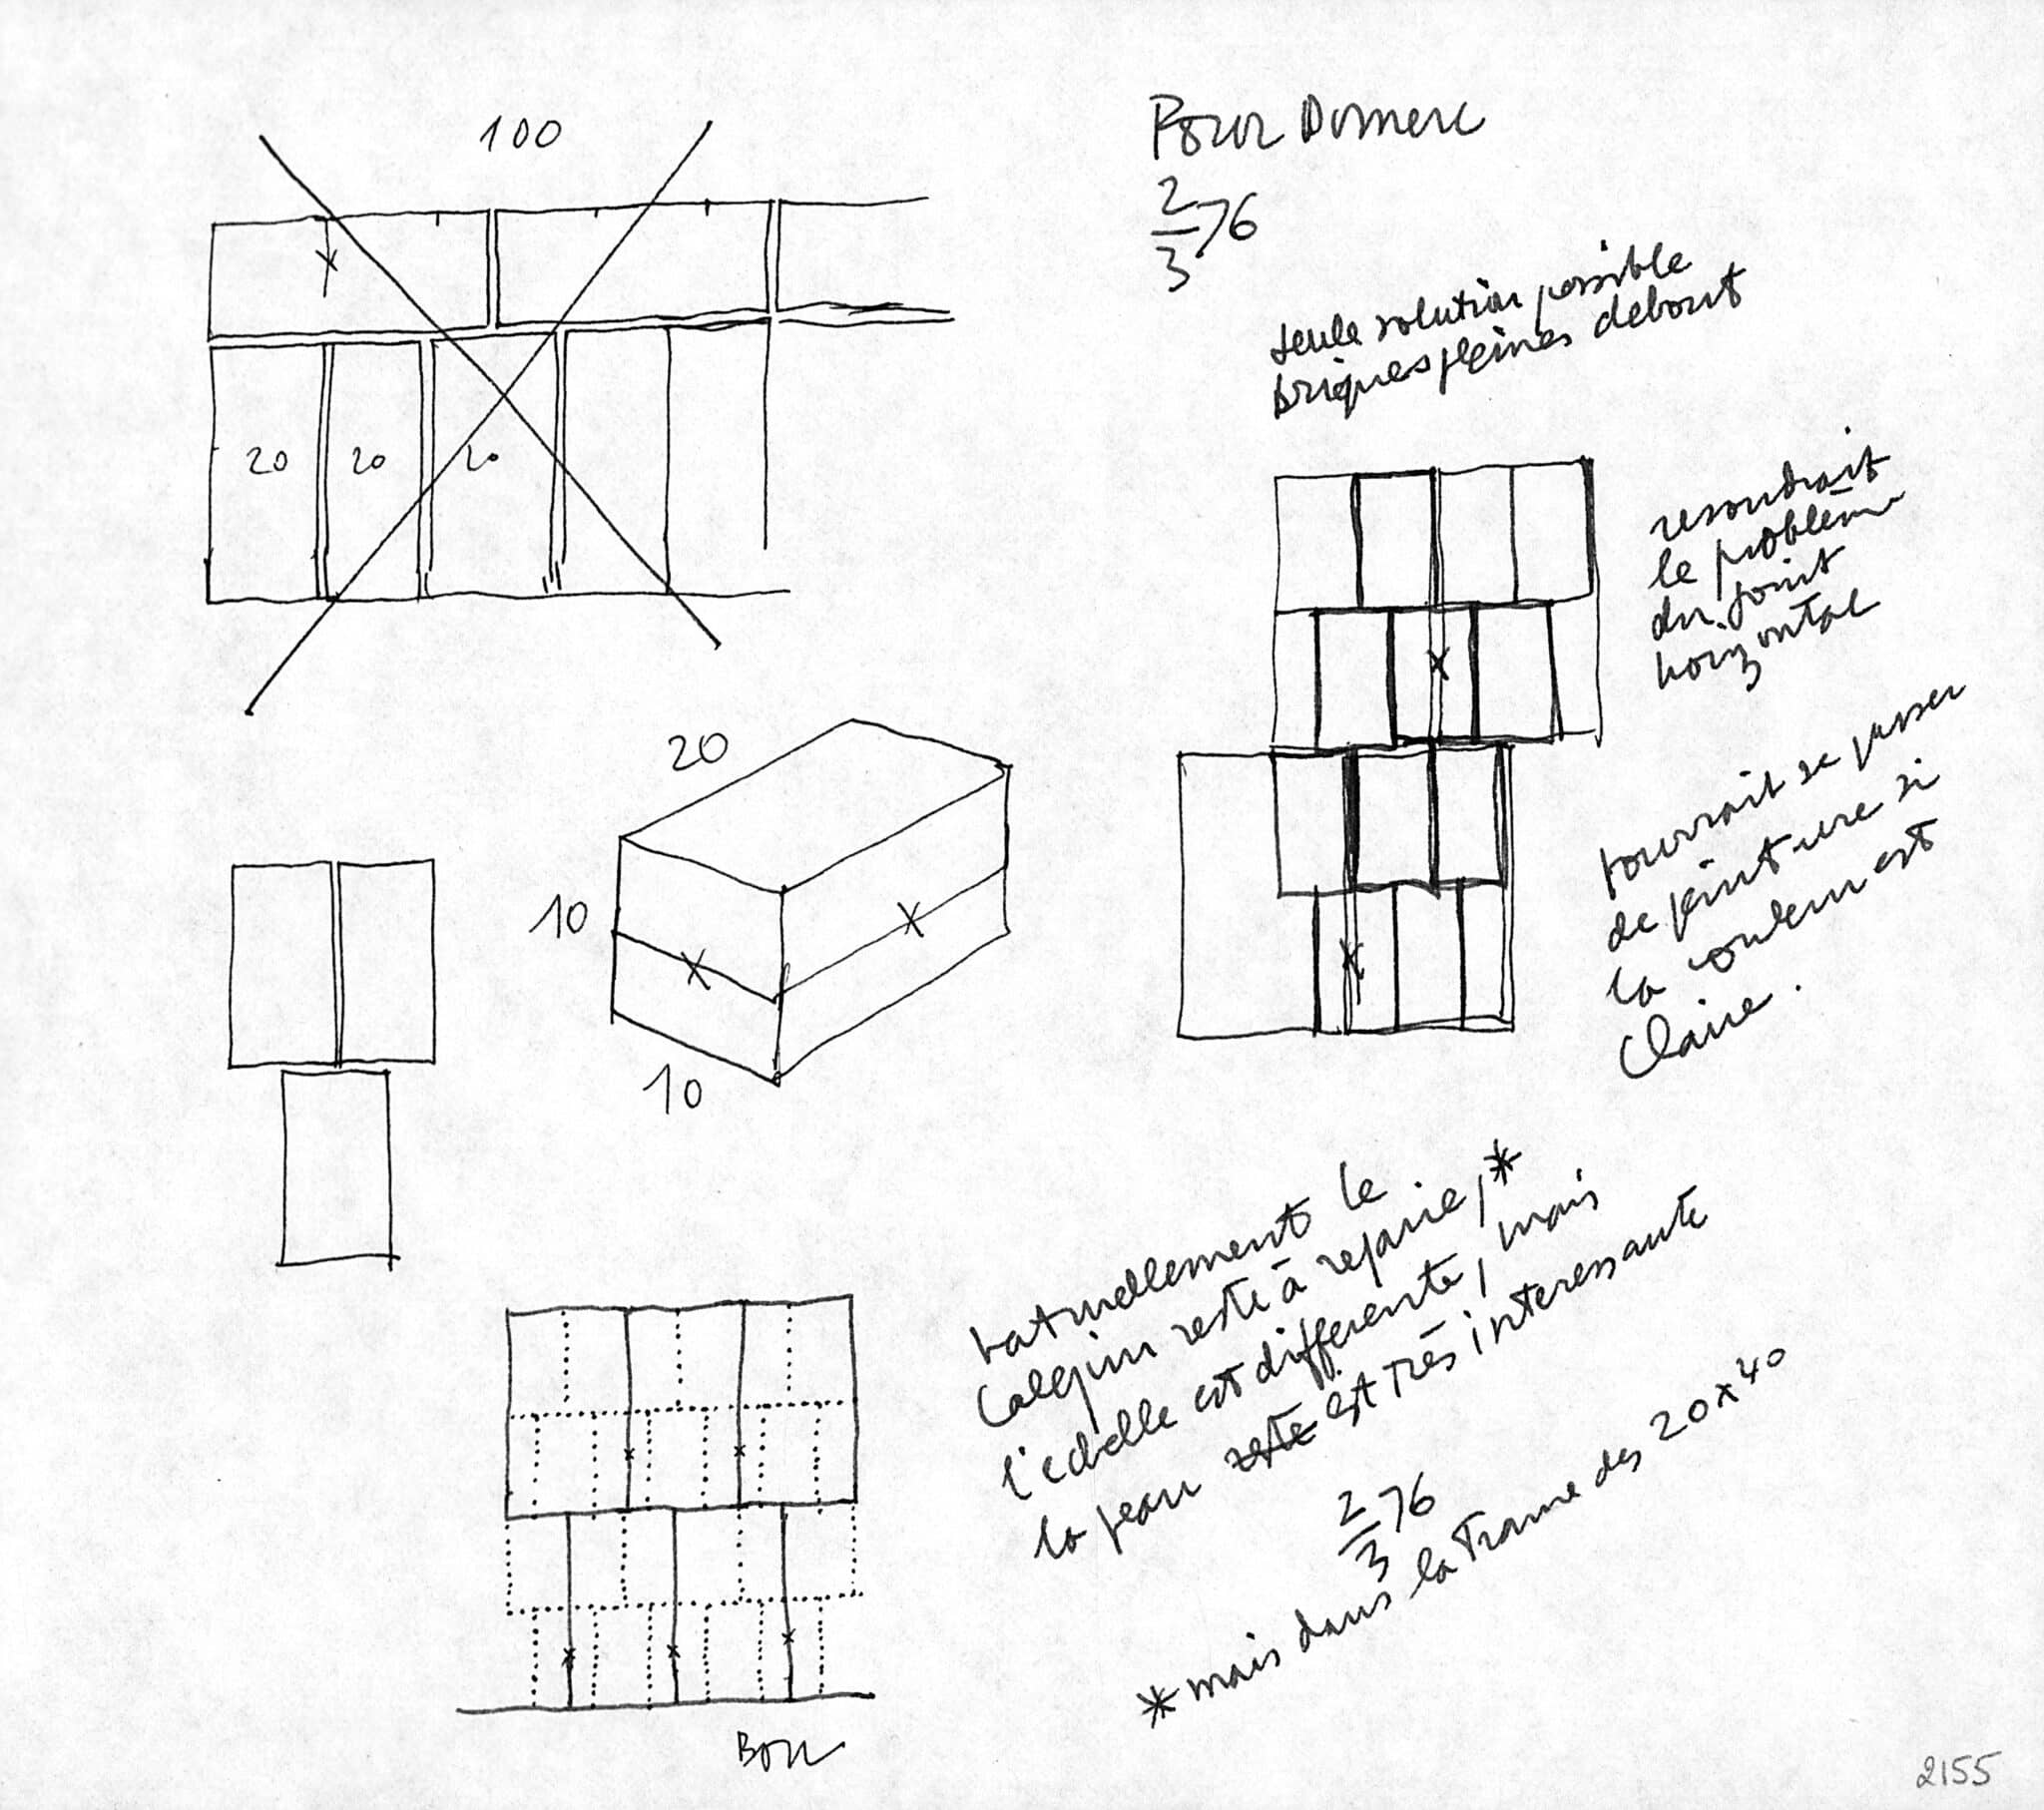 100
Pour Domerc
2/3 76
seule solution possible
briques pleines debout
20 20 20
resoudrait
le problème
du joint
horizontal
20
10
10
pourrait se passer
de peinture si
la couleur est
Claire.
naturellement le
Calepin reste à refaire,*
l'echelle est differente, mais
la peau reste est très interessante
2/3 76
*mais dans la Trame des 20x40
BON
2155